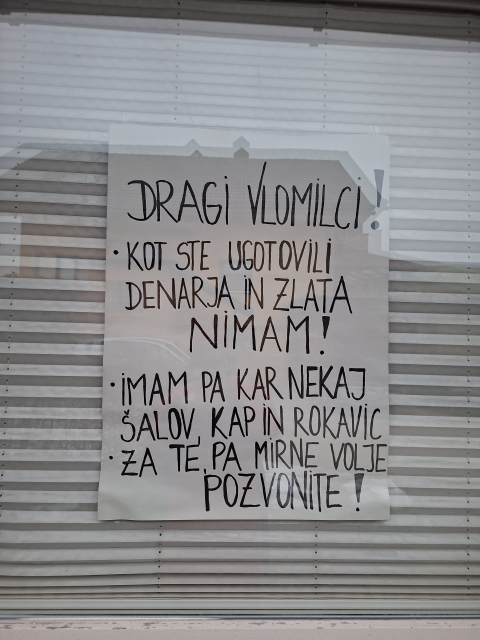 DRAGI VLOMILCI!
• KOT STE UGOTOVILI
DENARJA IN ZLATA
NIMAM!
• IMAM PA KAR NEKAJ
ŠALOV, KAP IN ROKAVIC
• ZA TE PA MIRNE VOLJE
POZVONITE!